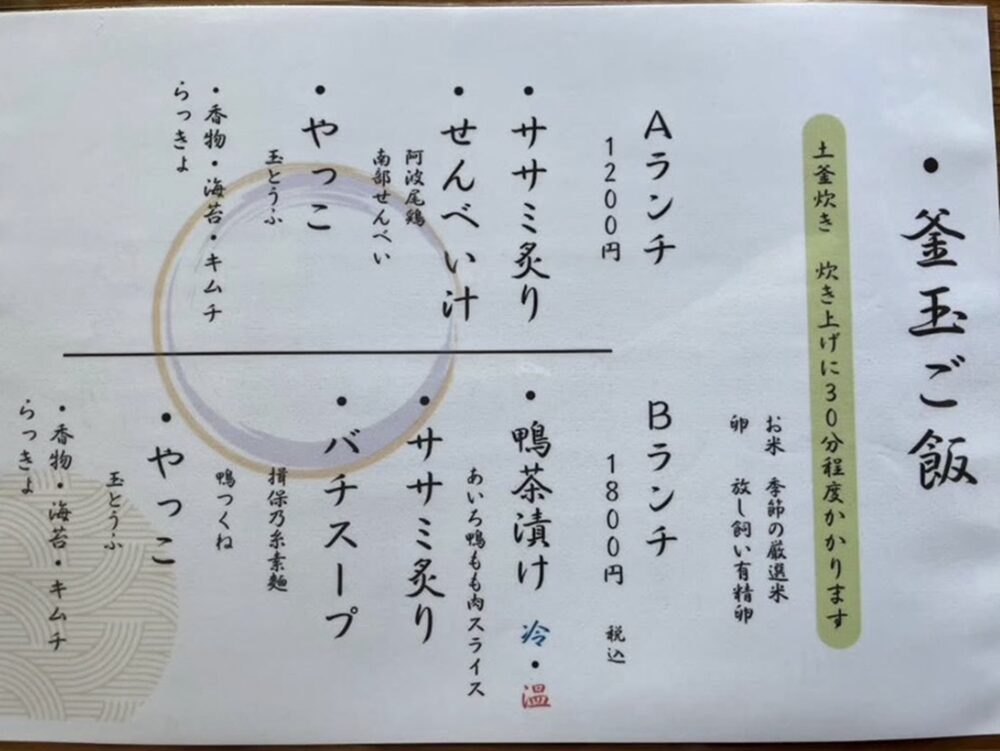 ・釜玉ご飯
土釜炊き 炊き上げに30分程度かかります
お米 季節の厳選米
卵 放し飼い有精卵
Aランチ
1200円
・ササミ炙り
・せんべい汁
阿波尾鶏
南部せんべい
・やっこ
玉とうふ
・香物・海苔・キムチ
らっきょ
Bランチ
1800円 税込
・鴨茶漬け 冷・温
あいろ鴨もも肉スライス
・ササミ炙り
・バチスープ
揖保乃糸素麺
鴨つくね
・やっこ
玉とうふ
・香物・海苔・キムチ
らっきょ